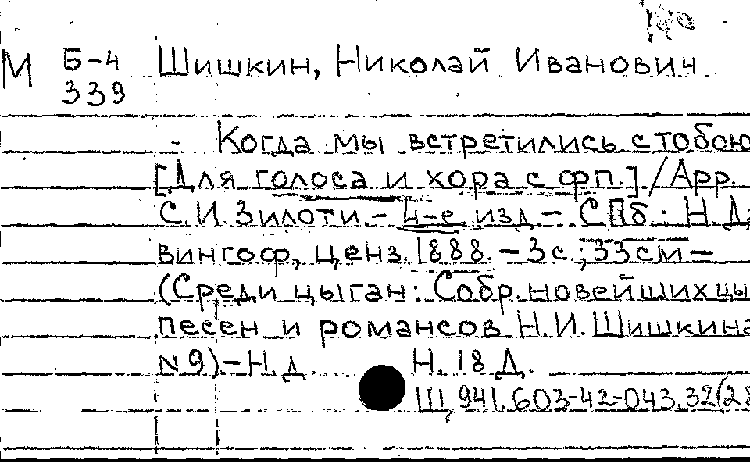 М Б-4 Шишкин, Николай Иванович
339
- Когда мы встретились с тобою
[Для голоса и хора с фп.] / Арр.
С.И. Зилоти - 4-е изд - СПб: Н. Д;
вингоф, ценз. 1888. - 3 с.; 33 см -
(Среди цыган: Собр. новейших цы
песен и романсов Н.И. Шишкина
N 9) - Н. д. Н. 18 Д.
Ш 941.603-42-043.32(28